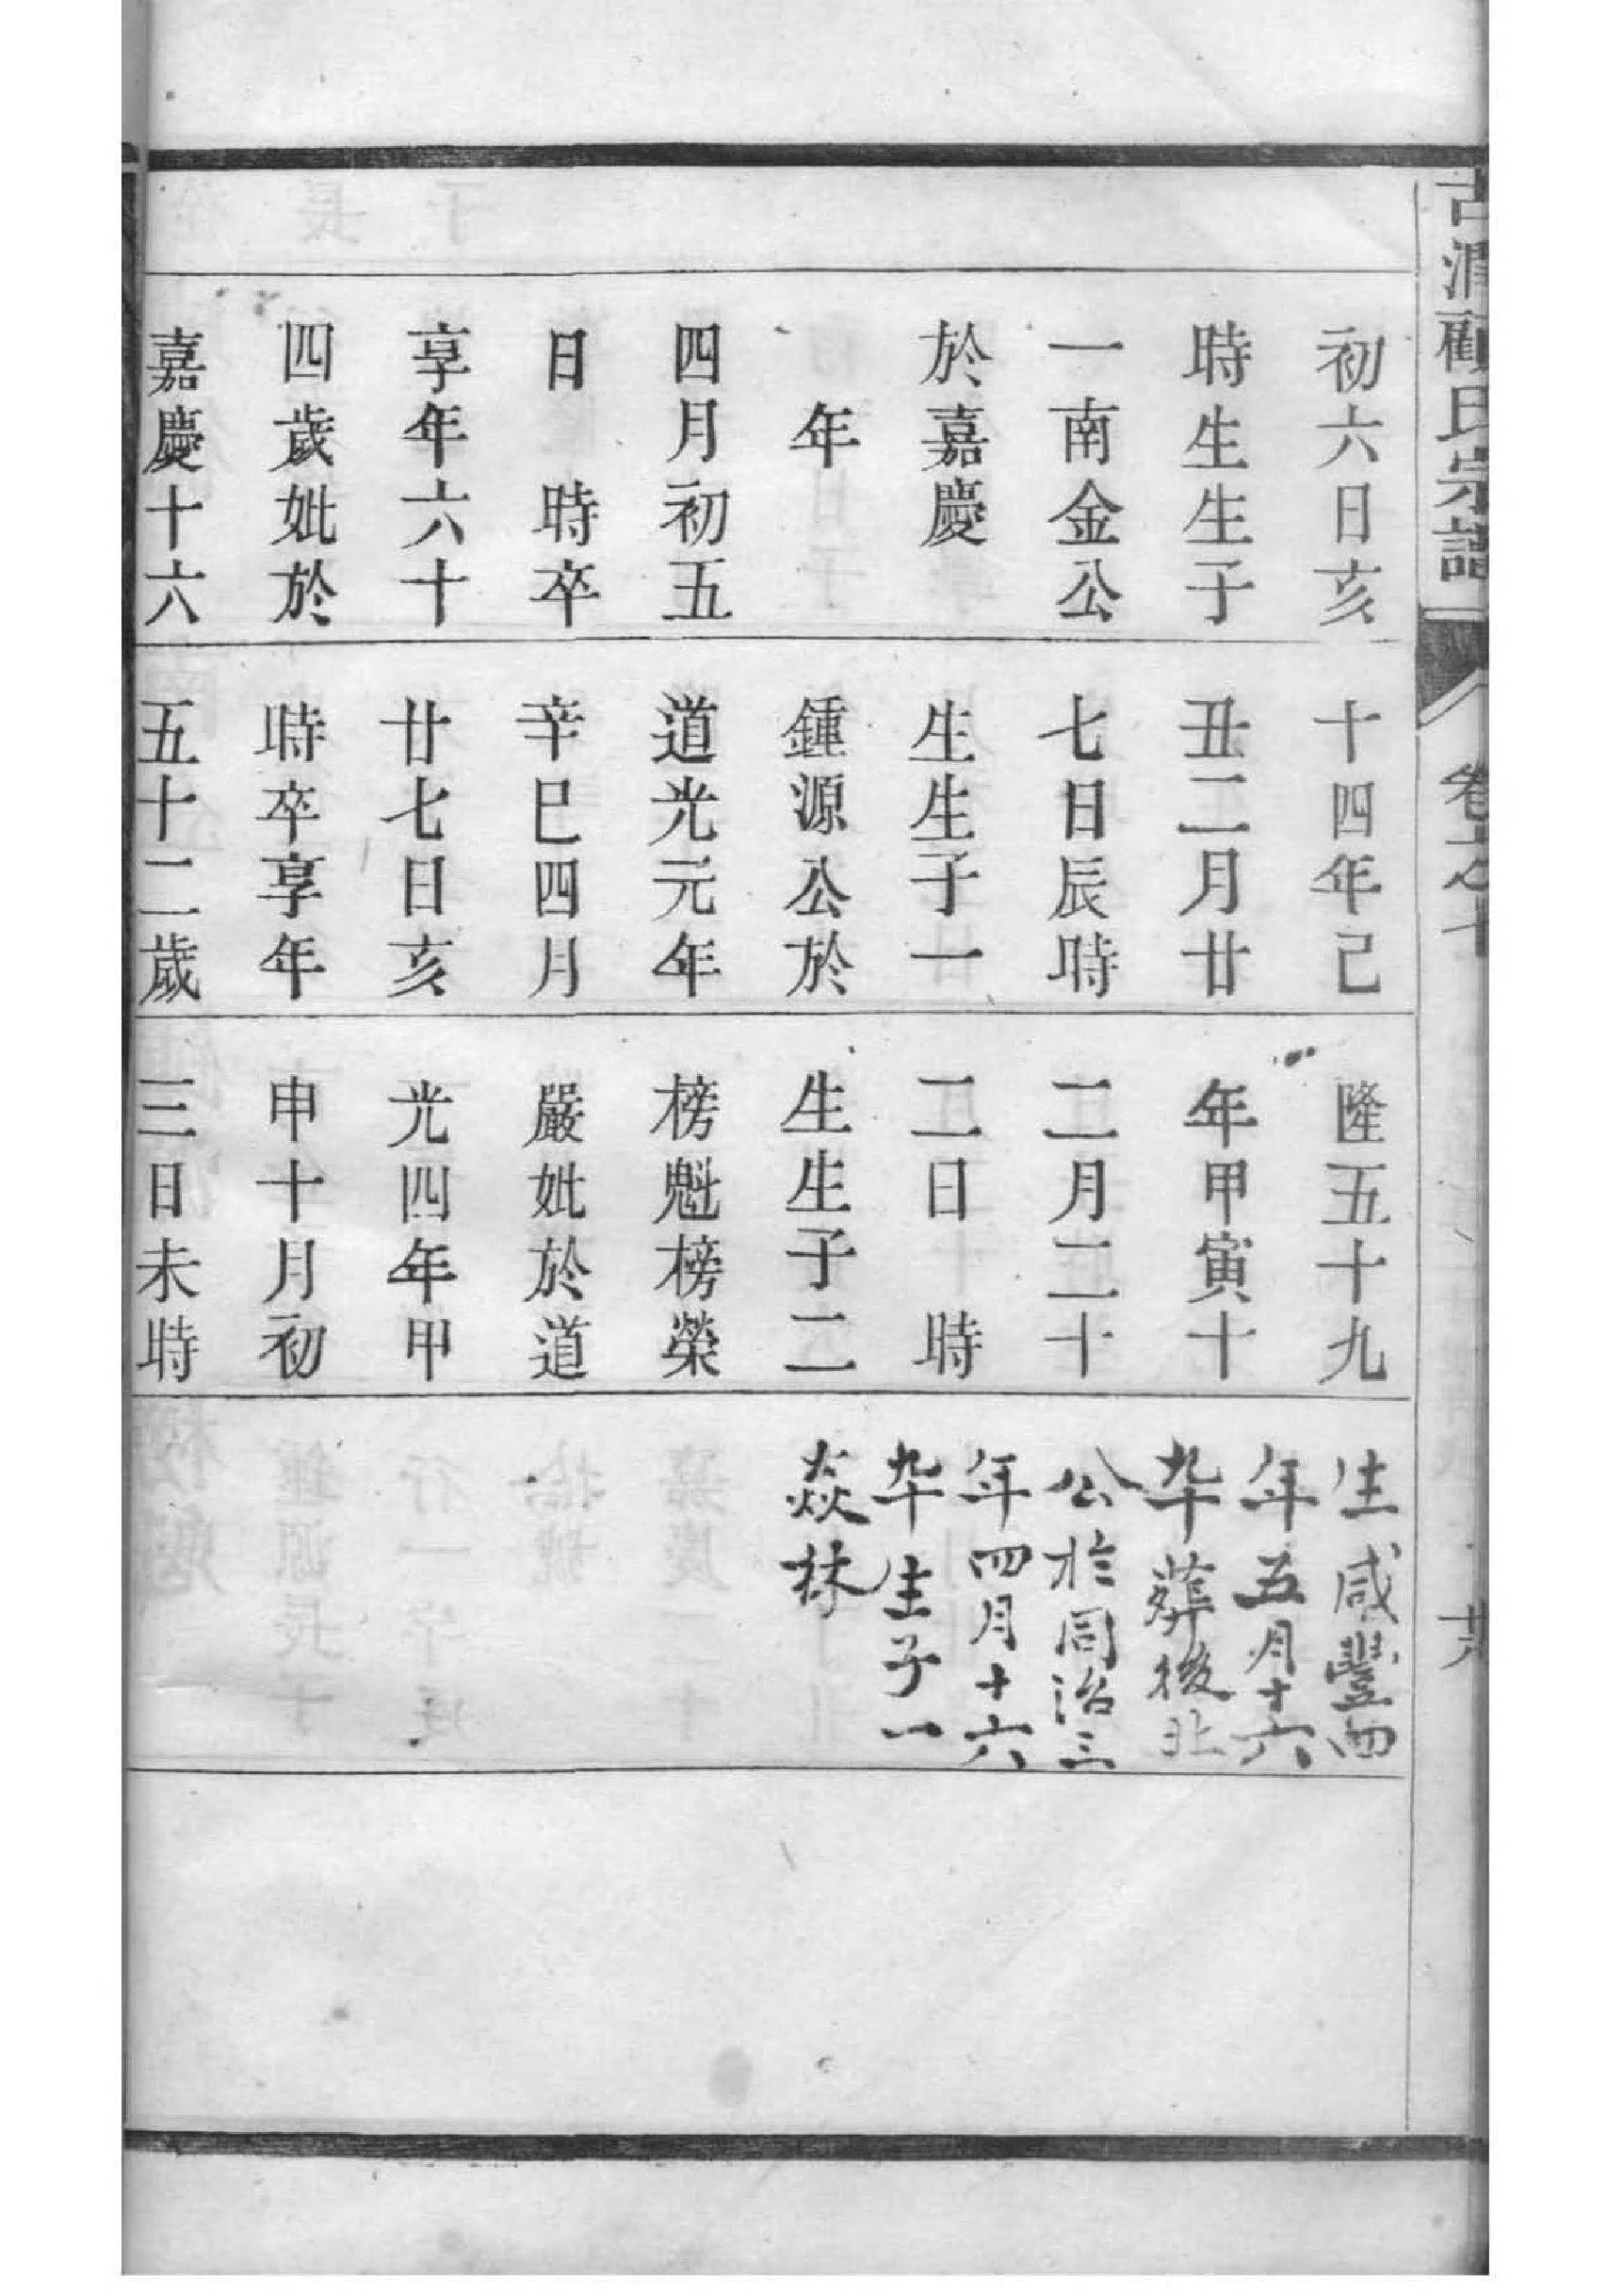 古潤顧氏宗譜
卷之十
初六日亥
時生生子
一南金公
於嘉慶
年
四月初五
日　時卒
享年六十
四歲妣於
嘉慶十六
十四年己
丑二月廿
七日辰時
生生子一
鍾源公於
道光元年
辛巳四月
廿七日亥
時卒享年
五十二歲
隆五十九
年甲寅十
二月二十
二日　時
生生子二
榜魁榜榮
嚴妣於道
光四年甲
申十月初
三日未時
生咸豐四
年五月十六
卒葬後北
公於同治三
年四月十六
卒生子一
焱林